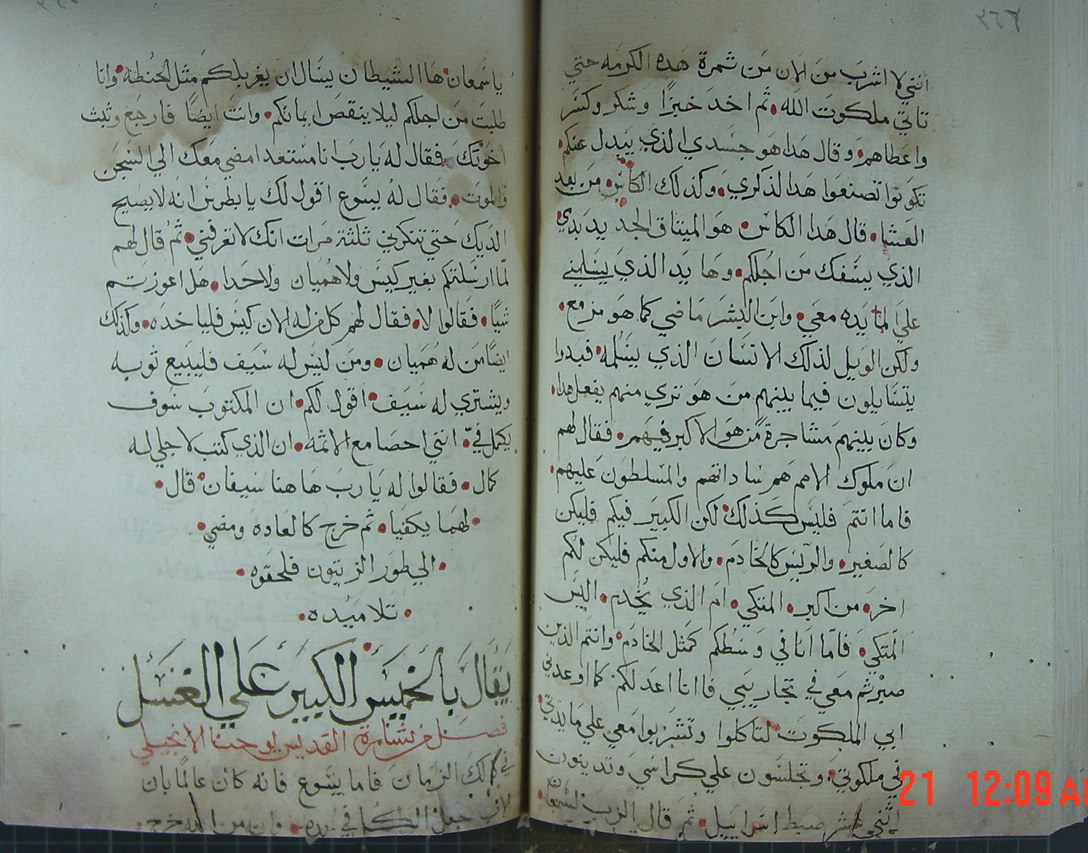 ٣٦٦
انني لا اشرب من الان من ثمرة هده الكرمه حتي
تاتي ملكوت الله • ثم اخد خبزًا وشكر وكسر
واعطاهم • وقال هدا هو جسدي الذي يبدل عنكم •
تكونوا تصنعوا هدا لذكري • وكذلك الكاس • من بعد
العشا • قال هدا الكاس • هو الميتاق الجديد بدمي
الذي يسفك من اجلكم • وها يد الذي يسلمني
علي المايده معي • وابن البشر ماضي كما هو مزمع •
ولكن الويل لذلك الانسان الذي يسلمه • فبدوا
يتسايلون فيما بينهم من هو تري منهم يفعل هدا •
وكان بينهم مشاجرة من هو الاكبر فيهم • فقال لهم
ان ملوك الامم هم ساداتهم والمسلطون عليهم •
فاما انتم فليس كذلك • لكن الكبير فيكم فليكن
كالصغير • والرييس كالخادم • والاول منكم فليكن لكم
اخر • من اكبر • المتكي • ام الذي يخدم • اليس
المتكي • فاما انا في وسطكم كمثل الخادم • وانتم الذين
صبرتم معي في تجاريبي فانا اعد لكم كما اوعدني
ابي الملكوت لتاكلوا وتشربوا معي علي مايدتي
في ملكوتي • وتجلسون علي كراسي وتدينون
اثني عشر صبط اسراييل • تم قال الرب لسمعان •
ياسمعان • ها الشيطان يسال ان يغربلكم متل الحنطة • وانا
طلبت من اجلكم ليلا ينقص ايمانكم • وانت ايضًا فارجع وتبت
اخوتك • فقال له يارب انا مستعد امضي معك الي السجن
والموت • فقال له يسوع اقول لك يا بطرس انه لا يصيح
الديك حتي تنكرني ثلثة مرات انك لا تعرفني • ثم قال لهم
لما ارسلتكم بغير كيس ولا هميان ولا حدا • هل اعوزتم
شيًا • فقالوا لا • فقال لهم كل من له الان كيس فلياخده • وكذلك
ايضًا من له هميان • ومن ليس له سيف فليبيع توبه
ويشتري له سيف • اقول لكم • ان المكتوب سوف
يكمل في • انني احصا مع الاثمه • ان الذي كتب لاجلي له
كمال • فقالوا له يارب هاهنا سيفان • قال •
• لهما يكفيا • ثم خرج كالعاده ومضي •
• الي طور الزيتون فلحقوه •
• تلاميده •
يقال يالخميس الكبير علي الغسل
فصل من بشارة القديس يوحنا الانجيلي
في دلك الزمان فاما يسوع فانه كان عالمًا بان
الاب جعل الكل في يده • وان من الله خرج
21 12:09 A